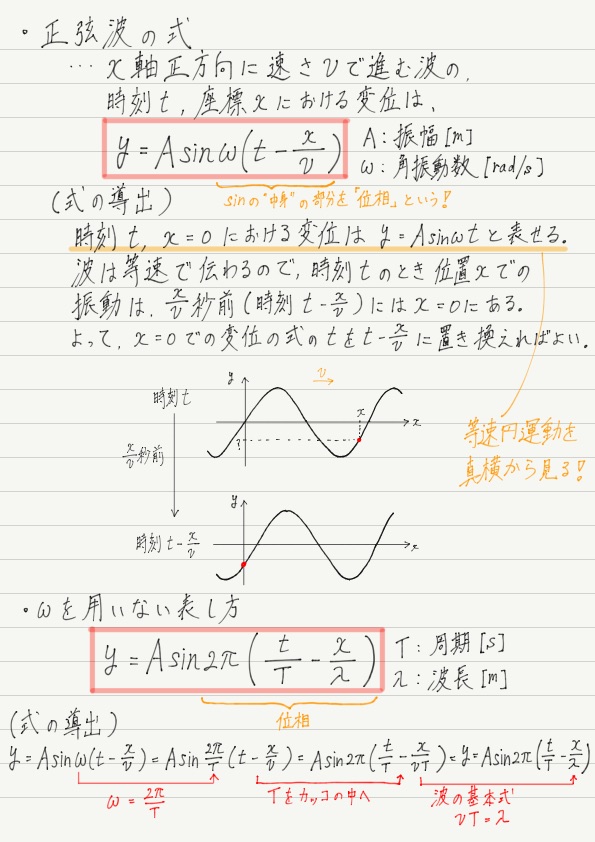 ・正弦波の式
… x軸正方向に速さvで進む波の、
時刻t，座標xにおける変位は、
y = A sin ω(t − x/v)
A：振幅[m]
ω：角振動数[rad/s]
sinの"中身"の部分を「位相」という!
(式の導出)
時刻t，x=0における変位は y=Asinωtと表せる。
波は等速で伝わるので，時刻tのとき位置xでの
振動は，x/v秒前(時刻t−x/v)にはx=0にある。
よって，x=0での変位の式のtをt−x/vに置き換えればよい。
等速円運動を
真横から見る!
時刻t
y
v
x
x
?
x/v秒前
時刻t−x/v
y
x
・ωを用いない表し方
y = A sin 2π(t/T − x/λ)
T：周期[s]
λ：波長[m]
位相
(式の導出)
y = A sin ω(t − x/v) = A sin 2π/T (t − x/v) = A sin 2π(t/T − x/vT) = y = A sin 2π(t/T − x/λ)
ω = 2π/T
Tをカッコの中へ
波の基本式
vT = λ